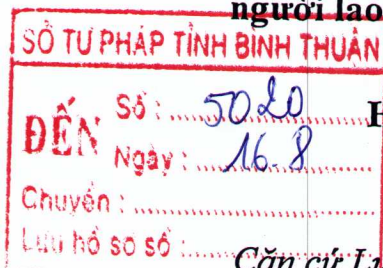 người lao
SỞ TƯ PHÁP TỈNH BÌNH THUẬN
ĐẾN
Số : 5020
Ngày : 16.8
Chuyển :
Lưu hồ sơ số :
Căn cứ